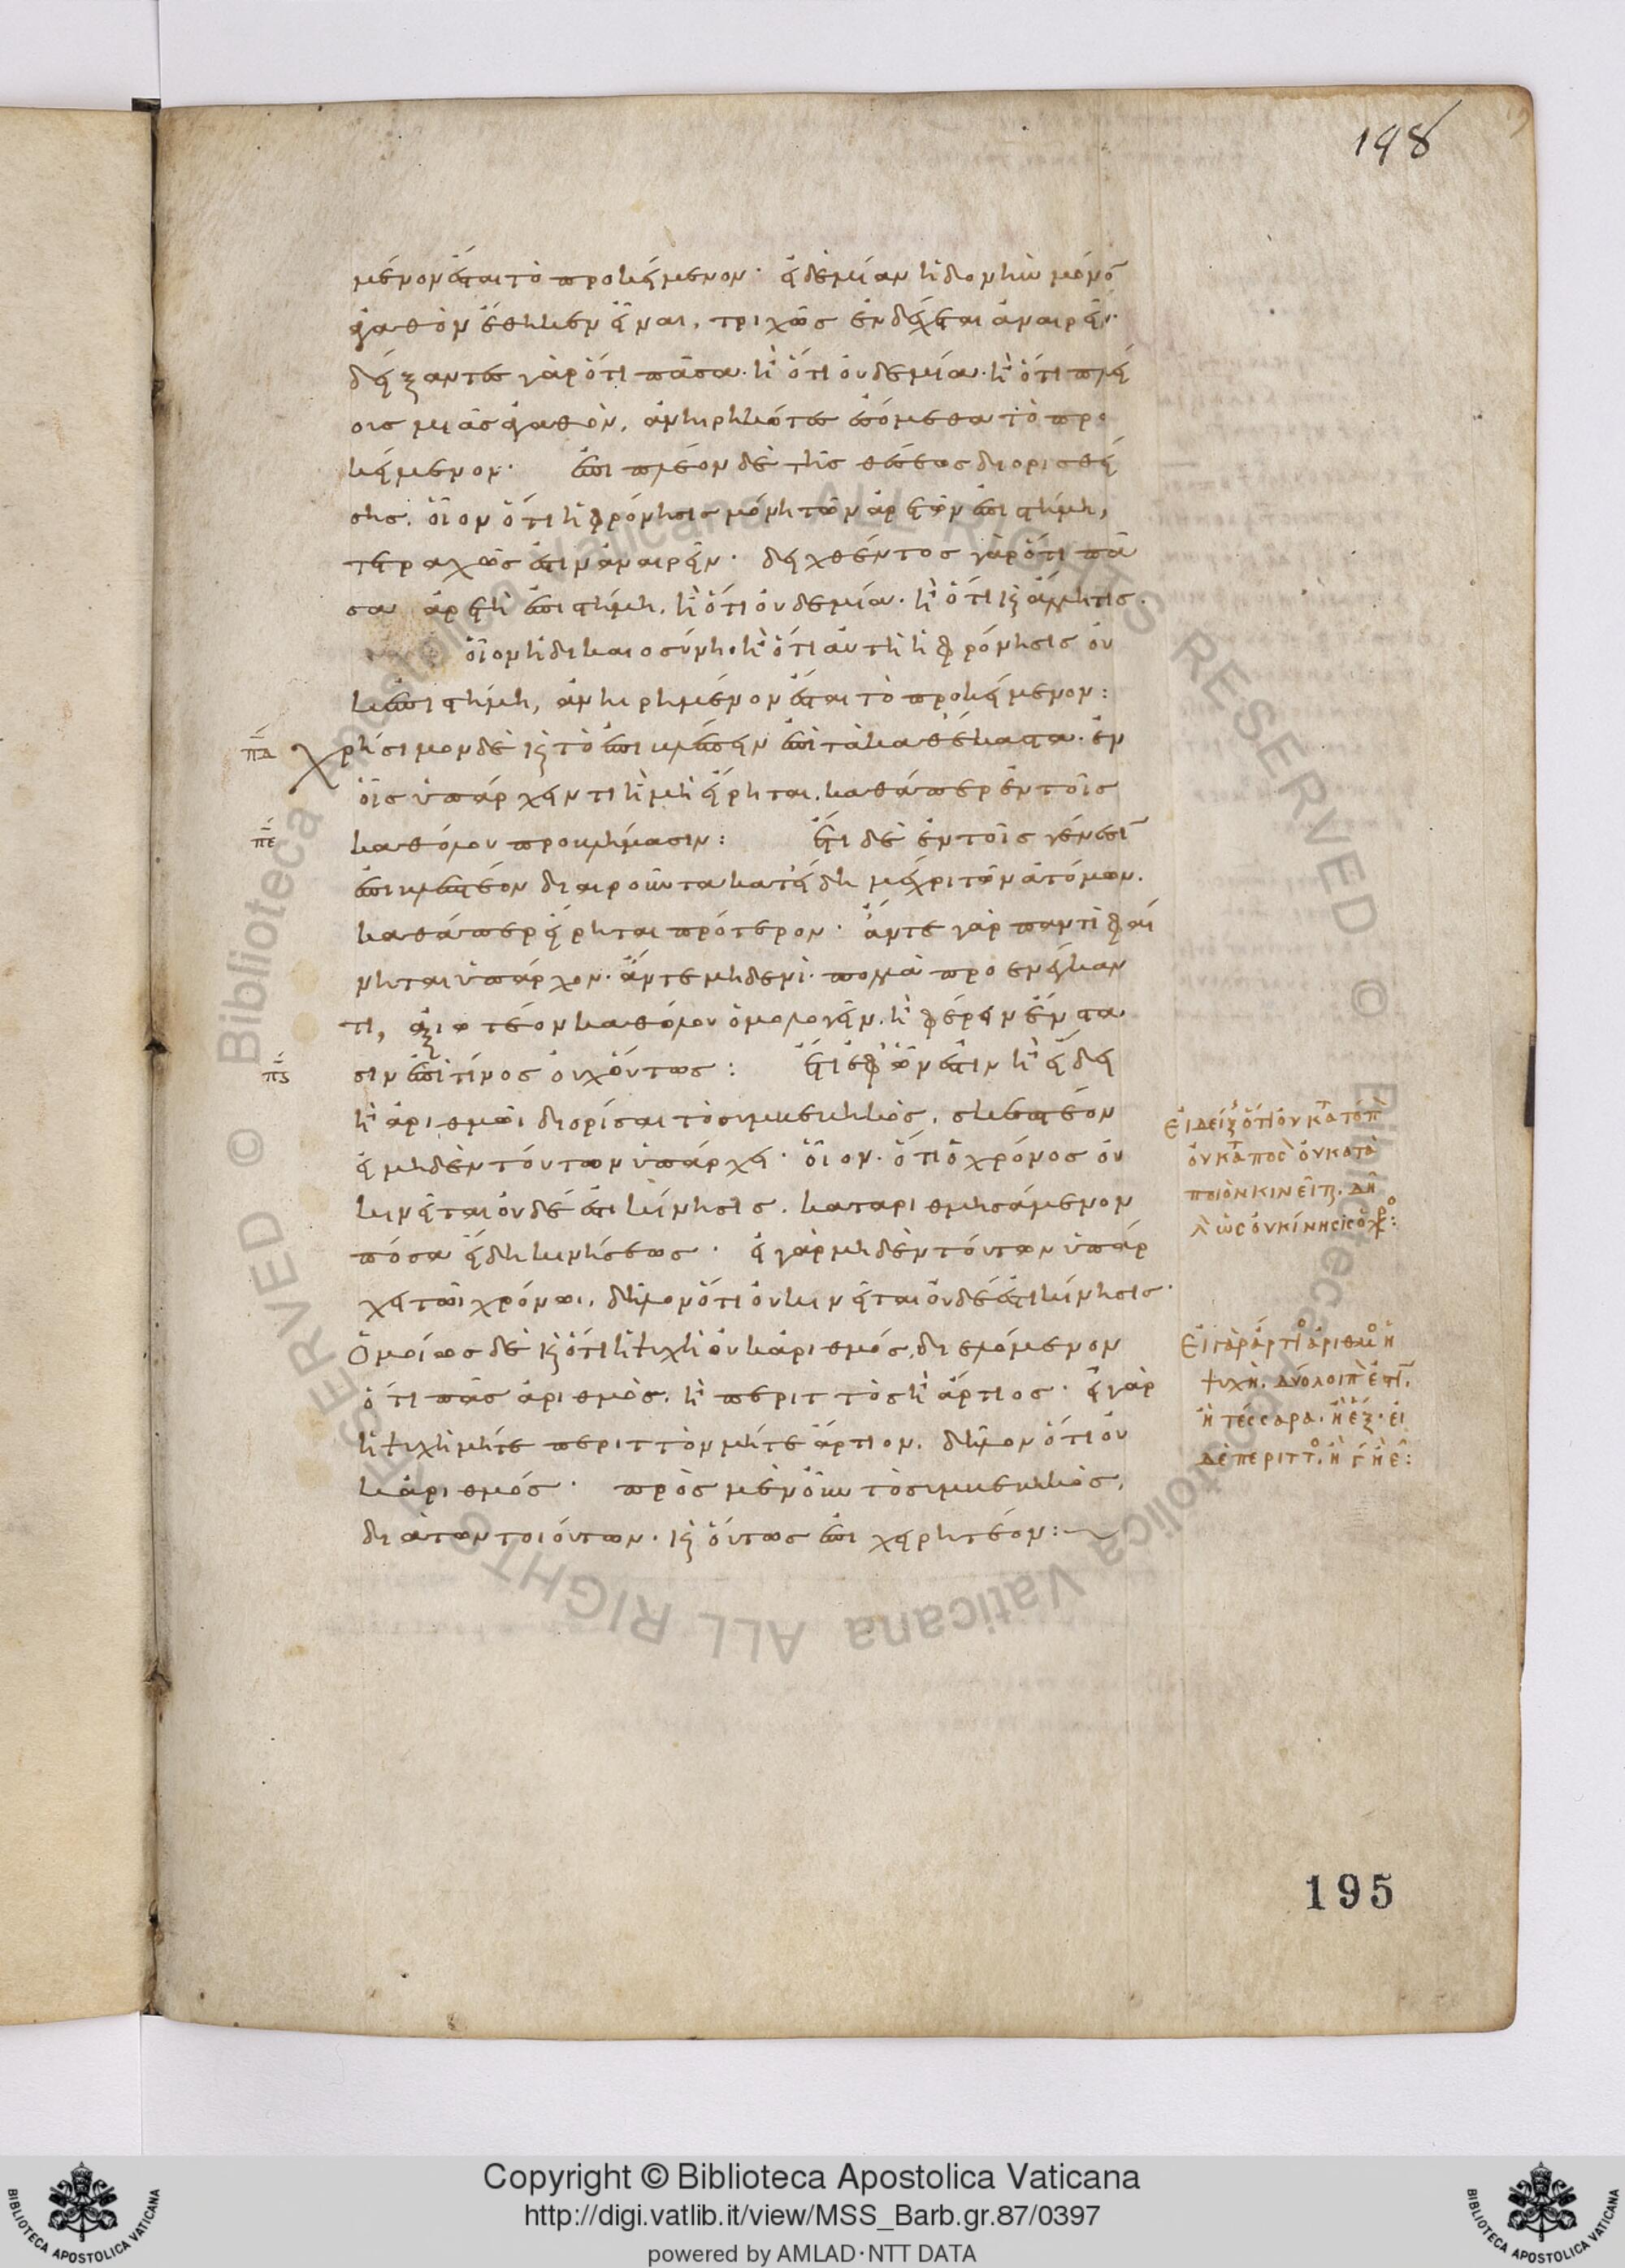 198
μένον ἔσται τὸ προκείμενον· εἰ δὲ μίαν ἡδονὴν μόνον
ἀγαθὸν ἔθηκεν εἶναι, τριχῶς ἐνδέχεται ἀναιρεῖν·
δείξαντες γὰρ ὅτι πᾶσα· ἢ ὅτι οὐδεμία· ἢ ὅτι πλεί
ους μιᾶς ἀγαθόν, ἀνῃρηκότες ἐσόμεθα τὸ προ
κείμενον· ἐπὶ πλέον δὲ τῆς θέσεως διορισθεί
σης, οἷον ὅτι ἡ φρόνησις μόνη τῶν ἀρετῶν ἐπιστήμη,
τετραχῶς ἔστιν ἀναιρεῖν· δειχθέντος γὰρ ὅτι πᾶ
σα ἀρετὴ ἐπιστήμη, ἢ ὅτι οὐδεμία· ἢ ὅτι καὶ ἄλλη τις·
οἷον ἡ δικαιοσύνη· ἢ ὅτι αὐτὴ ἡ φρόνησις οὐ
κ ἐπιστήμη, ἀνῃρημένον ἔσται τὸ προκείμενον:
πδ χρήσιμον δὲ καὶ τὸ ἐπιβλέπειν ἐπὶ τὰ καθέκαστα· ἐν
οἷς ὑπάρχειν τι ἢ μὴ εἴρηται, καθάπερ ἐν τοῖς
πε καθόλου προβλήμασιν: ἔτι δὲ ἐν τοῖς γένεσιν
ἐπιβλεπτέον διαιροῦντα κατ' εἴδη μέχρι τῶν ἀτόμων.
καθάπερ εἴρηται πρότερον· ἄν τε γὰρ παντὶ φαί
νηται ὑπάρχον· ἄν τε μηδενί· πολλὰ προενέγκαν
τι, ἀξιωτέον καθόλου ὁμολογεῖν, ἢ φέρειν ἔνστα
πς σιν ἐπὶ τίνος οὐχ οὕτως: ἔτι ἐφ' ὧν ἔστιν ἢ εἴδει
ἢ ἀριθμῶι διορίσαι τὸ συμβεβηκός, σκεπτέον
εἰ μηδὲν τούτων ὑπάρχει· οἷον· ὅτι ὁ χρόνος οὐ
κινεῖται οὐδέ ἐστι κίνησις, καταριθμησάμενον
πόσα εἴδη κινήσεως· εἰ γὰρ μηδὲν τούτων ὑπάρ
χει τῶι χρόνωι, δῆλον ὅτι οὐ κινεῖται οὐδέ ἐστι κίνησις·
Ὁμοίως δὲ καὶ ὅτι ἡ ψυχὴ οὐκ ἀριθμός, διελόμενον
ὅτι πᾶς ἀριθμός, ἢ περιττὸς ἢ ἄρτιος· εἰ γὰρ
ἡ ψυχὴ μήτε περιττὸν μήτε ἄρτιον, δῆλον ὅτι οὐ
κ ἀριθμός· πρὸς μὲν οὖν τὸ συμβεβηκός,
διὰ τῶν τοιούτων· καὶ οὕτως ἐπιχειρητέον:
εἰ δείξει ὅτι οὐ κατὰ τόπον
οὐ κατὰ ποσὸν οὐ κατὰ
ποιὸν κινεῖται. δη
λ ὡς οὐ κίνησις ὁ χρόνος:
Εἰ γὰρ ἄρτιος ἀριθμὸς ἡ
ψυχὴ, δύο λοιπὸν ἐστιν,
ἢ τέσσαρα. ἢ ἕξ. εἰ
δὲ περιττὸς, ἢ γ ἢ ε:
195
Copyright © Biblioteca Apostolica Vaticana
http://digi.vatlib.it/view/MSS_Barb.gr.87/0397
powered by AMLAD·NTT DATA